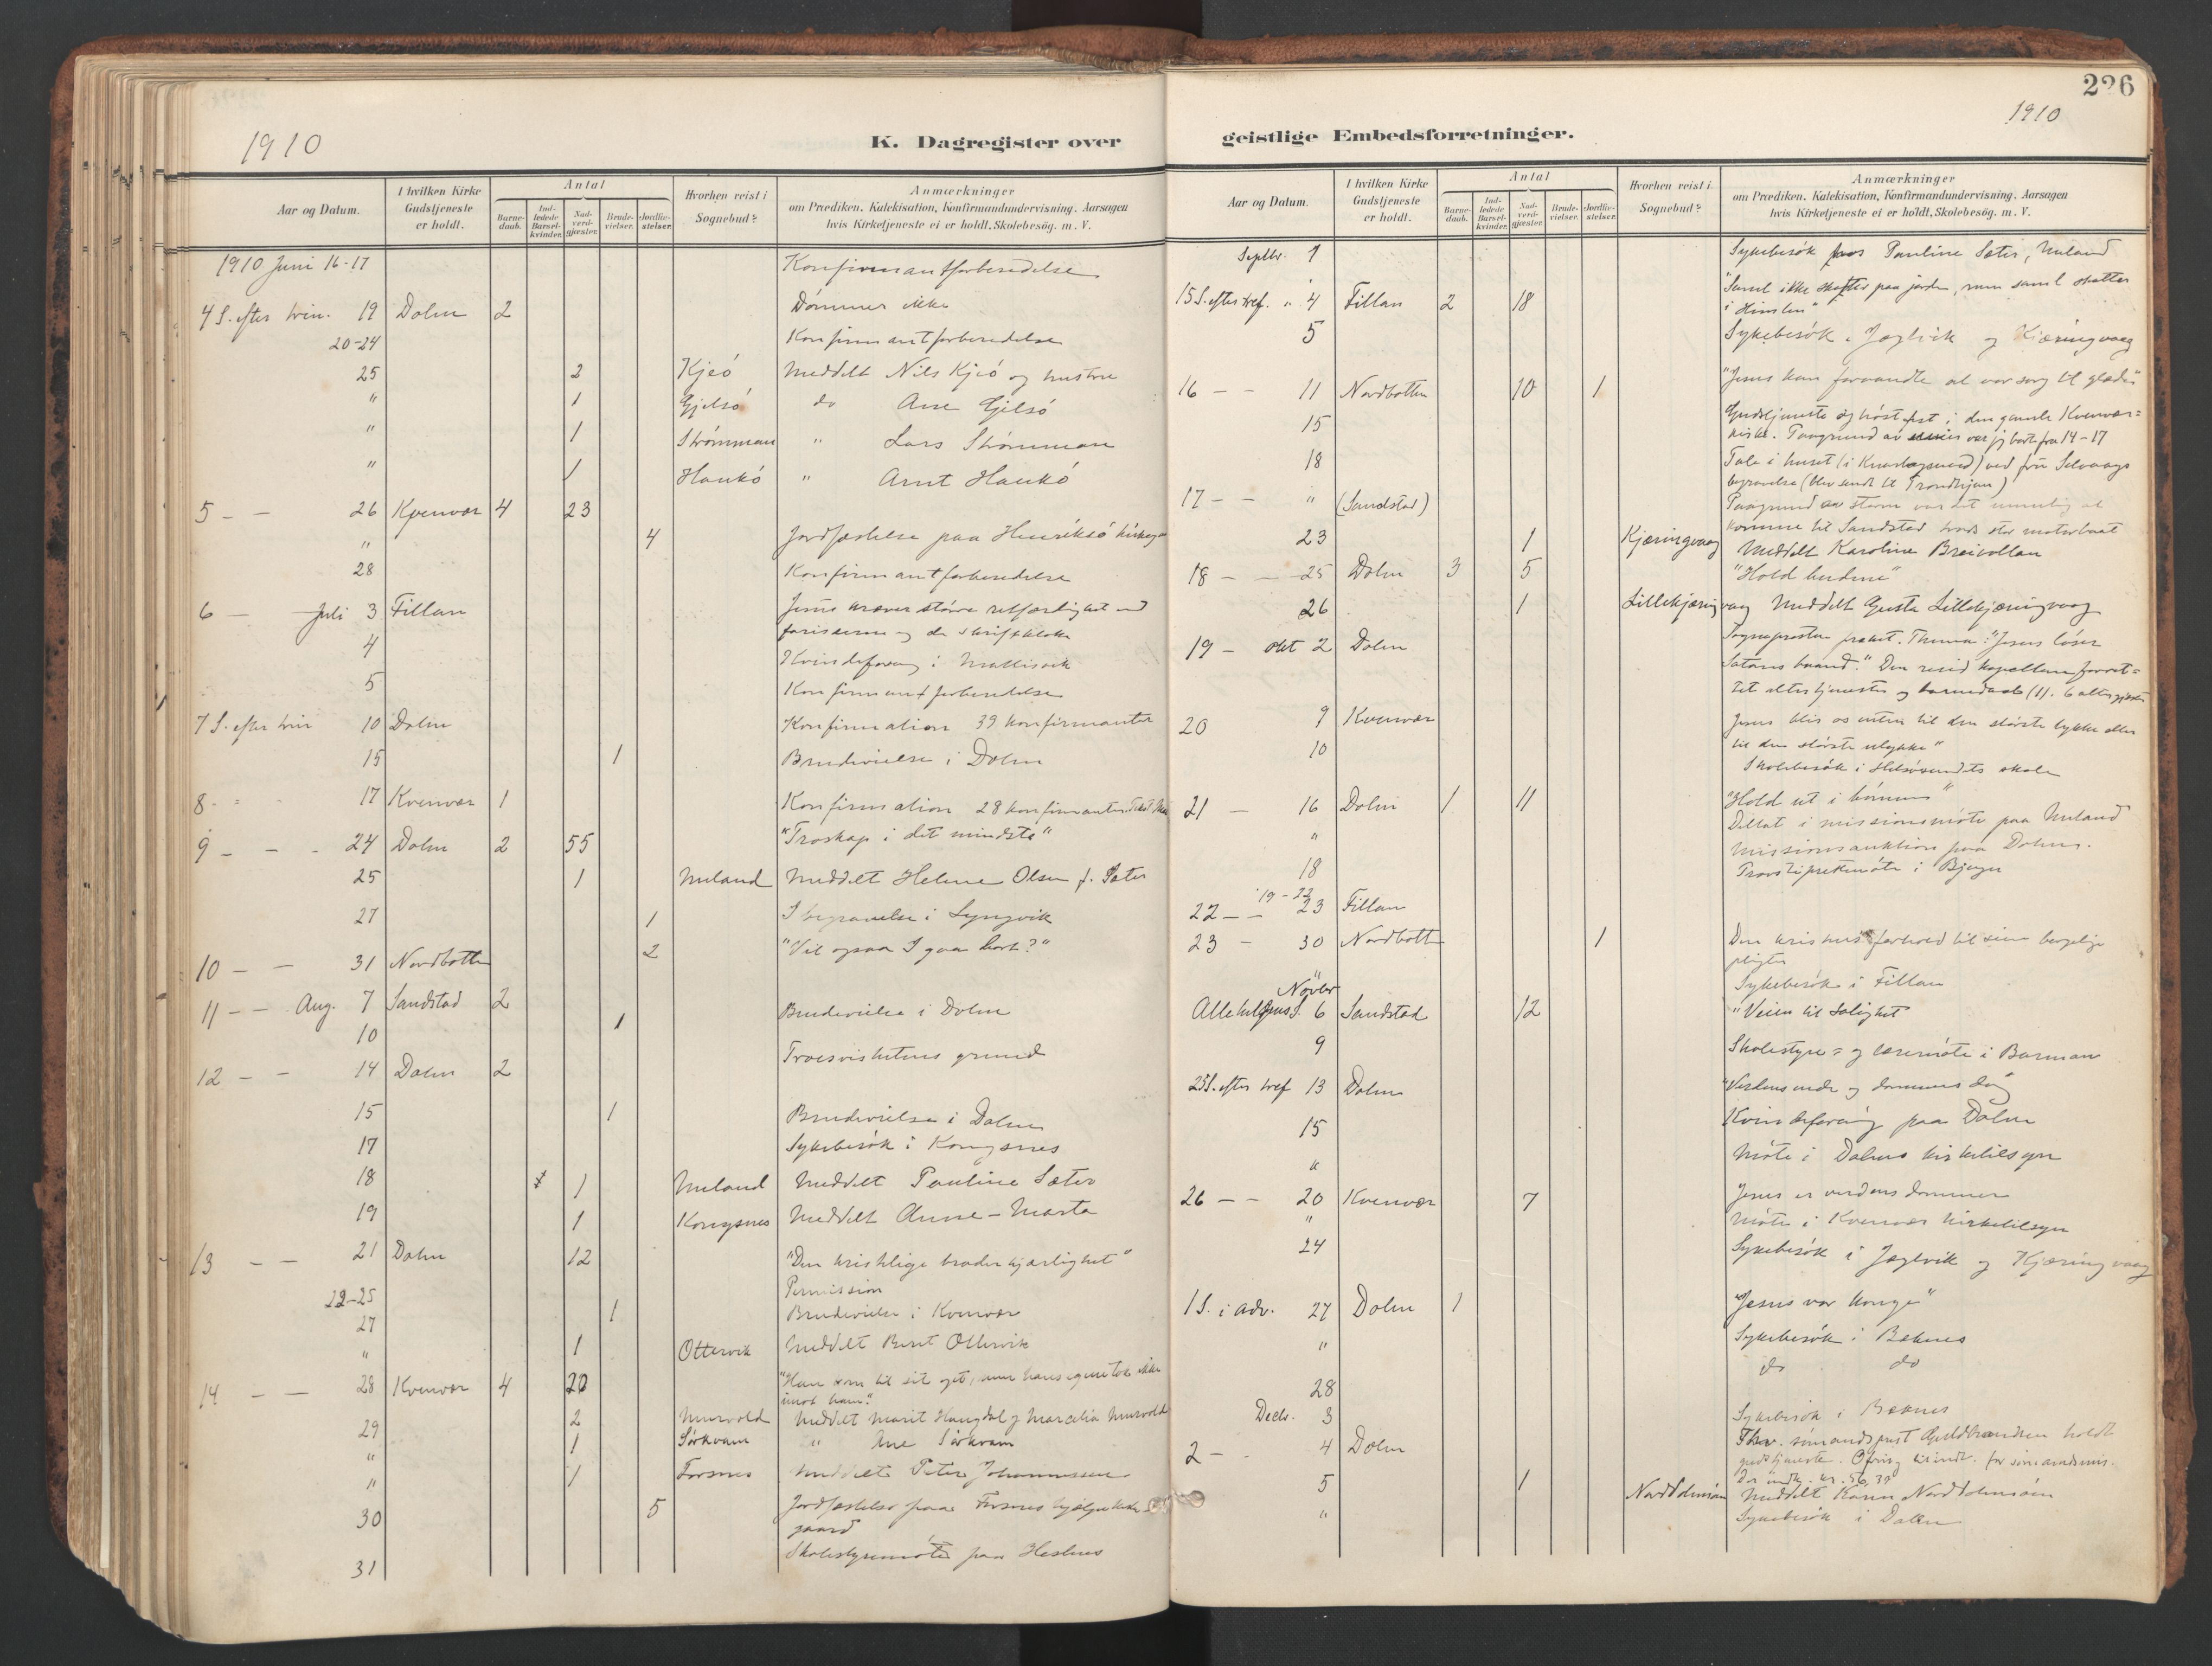 226
1910
1910
K. Dagregister over
geistlige Embedsforretninger.
Aar og Datum.
I hvilken Kirke Gudstjeneste er holdt.
Antal
Barne-daab.
Ind-ledede Barsel-kvinder.
Nad-verd-gjæster.
Brude-vielser.
Jordfæ-stelser.
Hvorhen reist i Sognebud?
Anmærkninger
om Prædiken. Katekisation, Konfirmandundervisning. Aarsagen
hvis Kirketjeneste ei er holdt. Skolebesøg. m. V.
1910 Juni 16-17 Konfirmantforberedelse
4 S. efter trin. 19 Dolm 2 Dömmer ikke
20-24 Konfirmantforberedelse
25 2 Kjeö Meddelt Nils Kjeö og hustru
" 1 Gjelsö do Ane Gjelsö
" 1 Strömman " Lars Strömman
" 1 Haukö " Arnt Haukö
5 - - 26 Kvenvær 4 23
" 4 Jordfæstelse paa Henriksö
28 Konfirmantforberedelse
6 - - Juli 3 Fillan Jesus kræver större retfærdighet end
fariseerne og de skriftkloke
4 Kvindeforening i
5 Konfirmantforberedelse
7 S. efter trin 10 Dolm Konfirmation 39 konfirmanter
15 1 Brudevielse i Dolm
8 - - 17 Kvenvær 1 Konfirmation 28 konfirmanter.
9 - - - 24 Dolm 2 55 "Troskap i det mindste"
25 1 Meland Meddelt Helene Olsen f. Sæter
27 1 I begravelse i Lyngvik
10 - - 31 Nordbotten 2 "Vil ogsaa I gaa bort?"
11 - - Aug. 7 Sandstad 2
10 1 Brudevielse i Dolm
12 - - 14 Dolm 2 Troesvishetens grund
15 1 Brudevielse i Dolm
17 Sykebesök i Kongsnes
18 1 Meland Meddelt Pauline Sæter
19 1 Kongsnes Meddelt Anne-Marta
13 - - 21 Dolm 12 "Den kristelige broderkjærlighet"
22-25 Permission
27 1 Brudevielse i Kvenvær
" 1 Ottervik Meddelt Berit Ottervik
14 - - 28 Kvenvær 4 20 "Han kom til sit eget, men hans egne tok ikke
imot ham."
29 2 Murvold Meddelt Marit Haugdal og Marcelia Murvold
" 1 Sörkvam " Ane Sörkvam
" 1 Forsnes Meddelt Peter Johannessen
30 5 Jordfæstelse paa Forsnes
gaard
31 Skolestyremöte paa Hestnes
Aar og Datum.
I hvilken Kirke Gudstjeneste er holdt.
Antal
Barne-daab.
Ind-ledede Barsel-kvinder.
Nad-verd-gjæster.
Brude-vielser.
Jordfæ-stelser.
Hvorhen reist i Sognebud?
Anmærkninger
om Prædiken. Katekisation, Konfirmandundervisning. Aarsagen
hvis Kirketjeneste ei er holdt. Skolebesøg. m. V.
Septbr. 1 Sykebesök hos Pauline Sæter, Meland
15 S. efter tref. " 4 Fillan 2 18 "Saml ikke skatter paa jorden, men saml skatter
i Himlen"
5 Sykebesök i Jøglvik og Kjæringvaag
16 - - 11 Nordbotten 10 1 "Jesus kan forvandle al vor sorg til glæde"
15 Gudstjeneste og höstfest i den gamle Kvenvær=
kirke. Paagrund av var jeg borte fra 14-17
18 Tale i huset (i ) ved fru Selvaags
begravelse (blev sendt til Trondhjem)
17 - - " (Sandstad) Paagrund av storm var det umulig at
komme til Sandstad trods stor motorbaat
23 1 Kjæringvaag Meddelt Karoline Breivollan
18 - - 25 Dolm 3 5 "Hold budene"
26 1 Lillekjæringvaag Meddelt Gusta Lillekjæringvaag
19 - okt 2 Dolm Sogneprosten præket. Thema: "Jesus löser
Satans baand." Den resid kapellan forret=
tet altertjenesten og barnedaab (1). 6 altergjester
20 9 Kvenvær Jesus blir os enten til den störste lykke eller
til den störste ulykke"
10 Skolebesök i Helsösundets skole
21 - 16 Dolm 1 11 "Hold ut i bönnen"
" Deltat i missionsmöte paa Meland
18 missionsauktion paa Dolmö.
19-22 Provstiprestemöte i Bjugn
22 - - 23 Fillan
23 - 30 Nordbotten 1 Den kristnes forhold til sine borgelige
pligter
Sykebesök i Fillan
Növbr
Allehelgens S. 6 Sandstad 12 "Veien til Salighet
9 Skolestyre= og læremöte i Barman
25 S. efter tref 13 Dolm "Verdens ende og dommens dag
15 Kvindeforening paa Dolm
" Möte i Dolms kirketilsyn
26 - - 20 Kvenvær 7 Jesus er verdens dommer
" Möte i Kvenvær kirketilsyn
24 Sykebesök i Jøglvik og Kjæringvaag
1 S. i adv. 27 Dolm 1 "Jesus vor konge"
" Sykebesök i Beknes
28 do do
Decbr. 3 Sykebesök i Beknes
2 - - 4 Dolm sömandsprest Guldbrandsen holdt
gudstjeneste. Ofring til indt. for sömandsmis.
Der indk. kr. 56,35
5 1 Norddolmöen Meddelt Karen Norddolmöen
" Sykebesök i Dalen